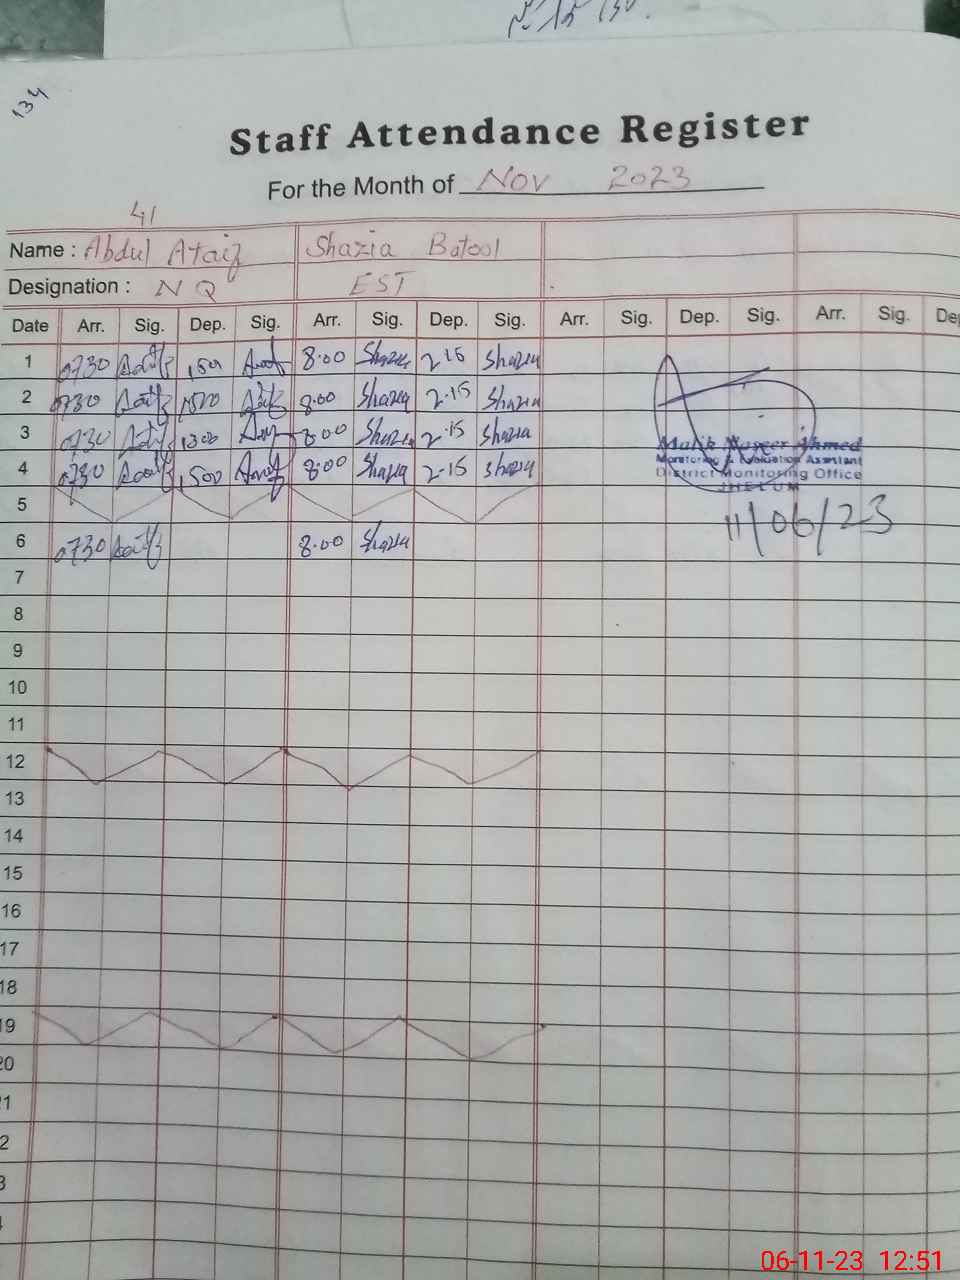 134
Staff Attendance Register
For the Month of Nov 2023
41
Name : Abdul Shazia Batool
Designation : NQ EST
Date Arr. Sig. Dep. Sig. Arr. Sig. Dep. Sig. Arr. Sig. Dep. Sig. Arr. Sig. De
1 0730 8.00 Shazia 2.15 Shazia
2 0730 8.00 Shazia 2.15 Shazia
3 0730 8.00 Shazia 2.15 Shazia
4 0730 1500 8.00 Shazia 2.15 Shazia
Malik Naseer Ahmed
Monitoring & Evaluation Assistant
District Monitoring Office
JHELUM
11/06/23
5
6 0730 8.00 Shazia
7
8
9
10
11
12
13
14
15
16
17
18
19
20
06-11-23 12:51